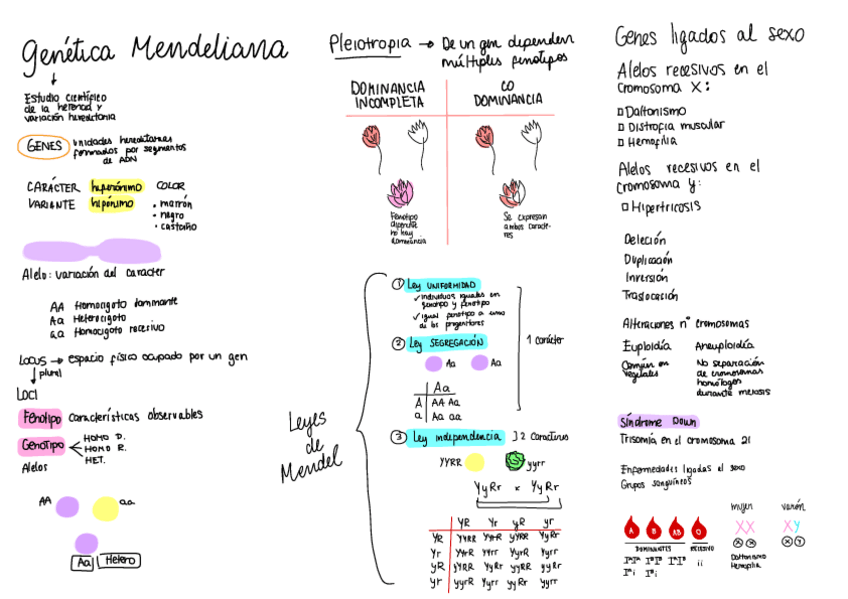 Genética Mendeliana
Estudio científico
de la herencia y
variación hereditaria
GENES unidades hereditarias
formadas por segmentos
de ADN
CARÁCTER hiperónimo COLOR
VARIANTE hipónimo • marrón
• negro
• castaño
Alelo: variación del caracter
AA Homocigoto dominante
Aa Heterocigoto
aa Homocigoto recesivo
LOCUS → espacio físico ocupado por un gen
plural
LOCI
Fenotipo características observables
Genotipo HOMO D.
HOMO R.
HET.
Alelos
AA aa
Aa Hetero
Pleiotropia → De un gen dependen
múltiples fenotipos
DOMINANCIA
INCOMPLETA
CO
DOMINANCIA
Fenotipo
no hay
dominancia
Se expresan
ambos caracte-
res
Leyes
de
Mendel
1 Ley UNIFORMIDAD
✓ individuos iguales en
genotipo y fenotipo
✓ igual fenotipo a uno
de los progenitores
2 Ley SEGREGACIÓN
Aa Aa
1 carácter
Aa
A AA Aa
a Aa aa
3 Ley independencia ] 2 Caracteres
YYRR yyrr
YyRr x YyRr
YR Yr yR yr
YR YYRR YYRr YyRR YyRr
Yr YYRr YYrr YyRr Yyrr
yR YyRR YyRr yyRR yyRr
yr YyRr Yyrr yyRr yyrr
Genes ligados al sexo
Alelos recesivos en el
cromosoma X:
Daltonismo
Distrofia muscular
Hemofilia
Alelos recesivos en el
cromosoma y:
Hipertricosis
Deleción
Duplicación
Inversión
Traslocación
Alteraciones nº cromosomas
Euploidía Aneuploidía
Común en
vegetales
No separación
de cromosomas
homólogos
durante meiosis
Síndrome Down
Trisomía en el cromosoma 21
Enfermedades ligadas al sexo
Grupos sanguíneos
A B AB O
DOMINANTES RECESIVO
ii
mujer varón
XX XY
Daltonismo
Hemofilia